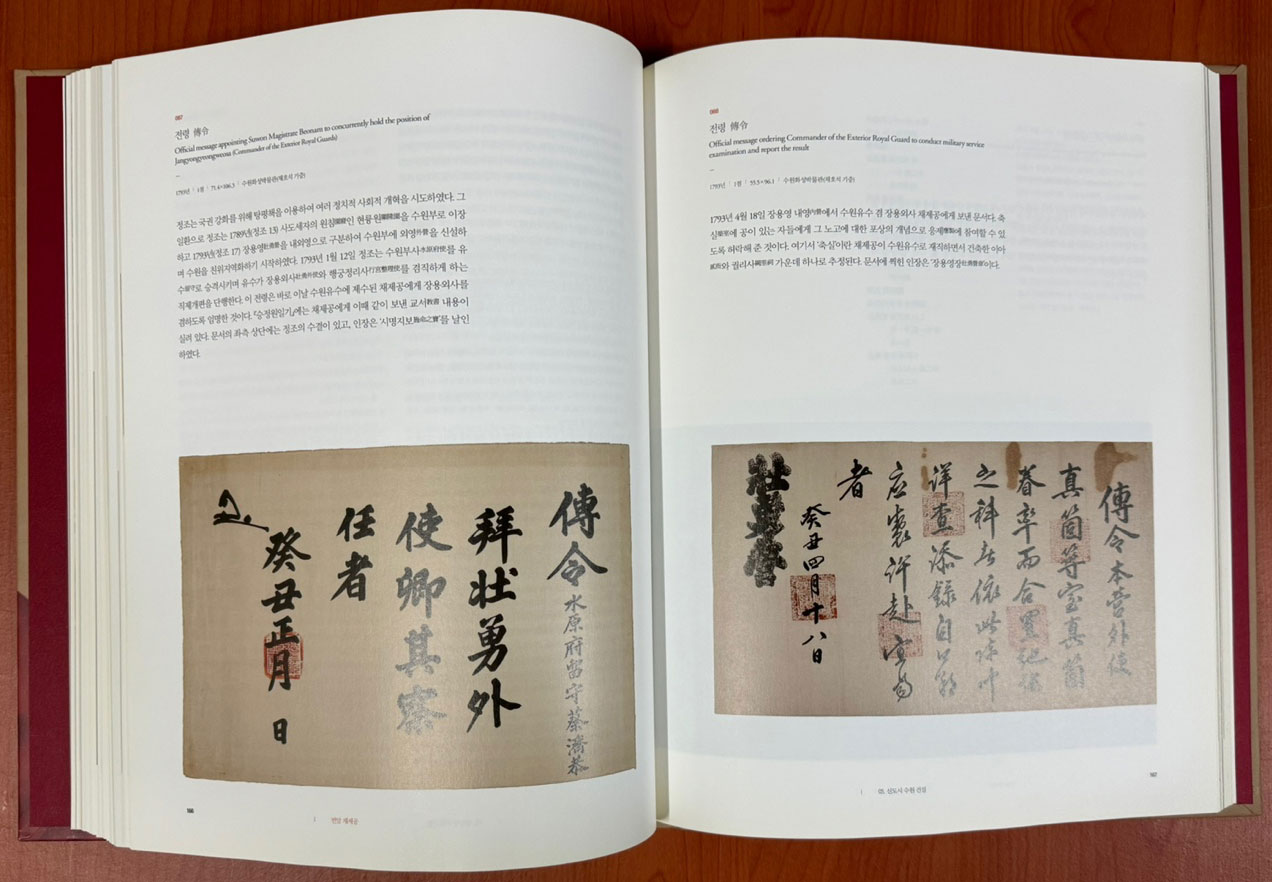 087
전령 傳令
Official message appointing Suwon Magistrate Beonam to concurrently hold the position of
Jangyongyeongweosa (Commander of the Exterior Royal Guards)
1793년 | 1점 | 71.4×106.3 | 수원화성박물관(채호석 기증)
정조는 국권 강화를 위해 탕평책을 이용하여 여러 정치적 사회적 개혁을 시도하였다. 그
일환으로 정조는 1789년(정조 13) 사도세자의 원침園寢인 현륭원顯隆園을 수원부로 이장
하고 1793년(정조 17) 장용영壯勇營을 내외영으로 구분하여 수원부에 외영外營을 신설하
며 수원을 친위지역화하기 시작하였다. 1793년 1월 12일 정조는 수원부사水原府使를 유
수留守로 승격시키며 유수가 장용외사壯勇外使와 행궁정리사行宮整理使를 겸직하게 하는
직제개편을 단행한다. 이 전령은 바로 이날 수원유수에 제수된 채제공에게 장용외사를
겸하도록 임명한 것이다. 『승정원일기』에는 채제공에게 이때 같이 보낸 교서敎書 내용이
실려 있다. 문서의 좌측 상단에는 정조의 수결이 있고, 인장은 '시명지보施命之寶'를 날인
하였다.
傳令 水原府留守蔡濟恭
拜壯勇外
使卿其察
任者
癸丑正月 日
166
번암 채제공
088
전령 傳令
Official message ordering Commander of the Exterior Royal Guard to conduct military service
examination and report the result
1793년 | 1점 | 55.5×96.1 | 수원화성박물관(채호석 기증)
1793년 4월 18일 장용영 내영內營에서 수원유수 겸 장용외사 채제공에게 보낸 문서다. 축
실築室에 공이 있는 자들에게 그 노고에 대한 포상의 개념으로 응제應製에 참여할 수 있
도록 허락해 준 것이다. 여기서 '축실'이란 채제공이 수원유수로 재직하면서 건축한 이아
貳衙와 궐리사闕里祠 가운데 하나로 추정된다. 문서에 찍힌 인장은 '장용영장壯勇營章'이다.
傳令本營外使
真箇等室真箇
之科者依此
詳查添錄自
应製許赴
者
癸丑四月十八日
壯勇營
05. 신도시 수원 건설
167